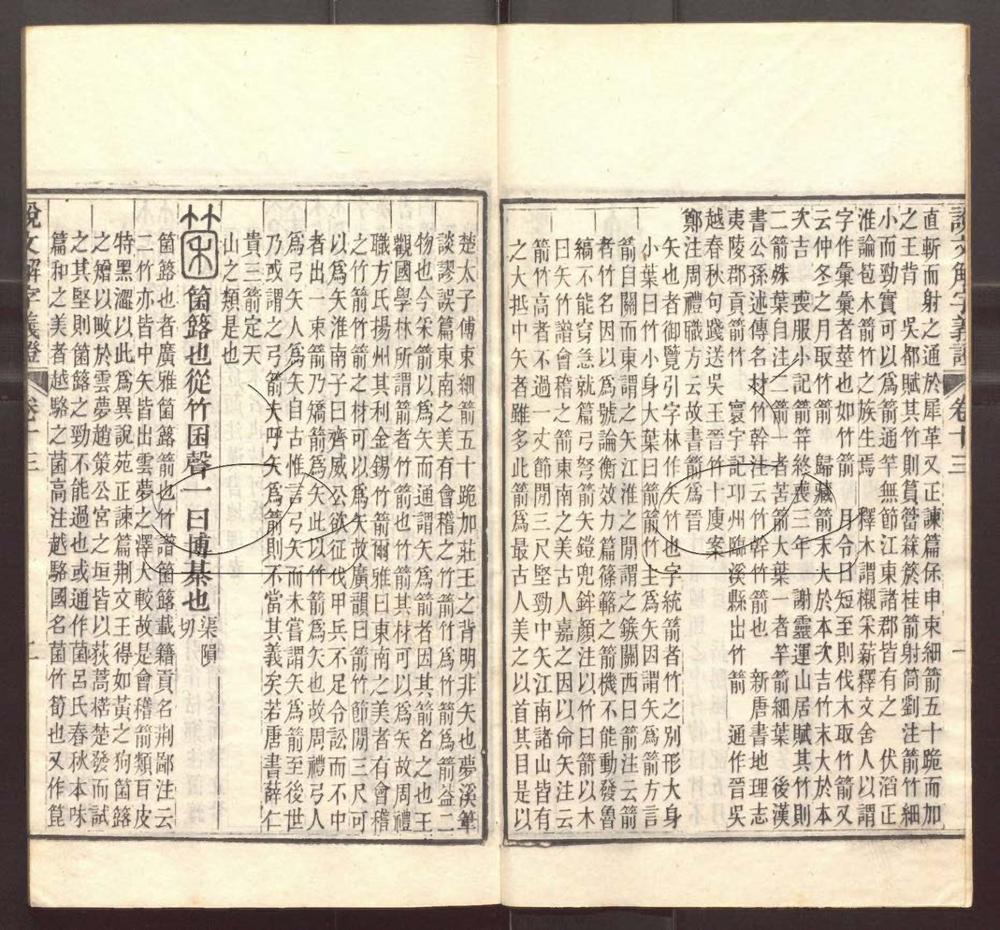 說文解字義證 卷十三 一
直斬而射之通於犀革又正諫篇保申束細箭五十跪而加
之王背 吳都賦其竹則篔簹箖菸桂箭射筒劉注箭竹細
小而勁實可以爲箭通竿無節江東諸郡皆有之 伏滔正
淮論苞木箭竹之族生焉 釋木謂櫬采薪釋文舍人以謂
字作彙彙者莖也如竹箭 月令日短至則伐木取竹箭又
云仲冬之月取竹箭 歸藏箭末大於本次吉竹末大於本
次吉 喪服小記箭笄終喪三年 謝靈運山居賦其竹則
二箭殊葉自注二箭一者苦箭大葉一者竿箭細葉 後漢
書公孫述傳名材竹幹注云竹幹竹箭也 新唐書地理志
夷陵郡貢箭竹 寰宇記邛州臨溪縣出竹箭 通作晉吳
越春秋句踐送吳王晉竹十廋案書箭爲晉
鄭注周禮職方云故書箭爲晉
矢也者御覽引字林作矢竹也字統箭者竹之別形大身
小葉曰竹小身大葉曰箭箭竹主爲矢因謂矢爲箭方言
箭自關而東謂之矢江淮之閒謂之鍭關西曰箭注云箭
者竹名因以爲號論衡效力篇篠簵之箭機不能動發魯
縞不能穿急就篇弓弩箭矢鎧兜鉾顏注以竹曰箭以木
曰矢竹譜會稽之箭東南之美古人嘉之因以命矢注云
箭竹高者不過一丈節閒三尺堅勁中矢江南諸山皆有
之大抵中矢者雖多此箭爲最古人美之以首其目是以
楚太子傅束細箭五十跪加莊王之背明非矢也夢溪筆
談謬誤篇東南之美有會稽之竹箭竹爲竹箭爲箭葢二
物也今采箭以爲矢而通謂矢爲箭者因其箭名之也王
觀國學林所謂箭者竹箭也竹箭其材可以爲矢故周禮
職方氏揚州其利金錫竹箭爾雅曰東南之美者有會稽
之竹箭竹箭之材可以爲矢故廣韻曰箭竹節閒三尺可
以爲矢淮南子曰齊威公欲征伐甲兵不足令訟而不中
者出一束箭乃矯箭爲矢此以竹箭爲矢也故周禮弓人
爲弓矢人爲矢自古惟言弓矢而未嘗謂矢爲箭至後世
乃或謂之弓箭夫呼矢爲箭則不當其義矣若唐書薛仁
貴三箭定天
山之類是也
箘 箘簬也從竹囷聲一曰博棊也 渠隕切
箘簬也者廣雅箘簬箭也竹譜箘簬載籍貢名荆鄙注云
二竹亦皆中矢皆出雲夢之澤大較故是會稽箭類百皮
特黑澀以此爲異說苑正諫篇荆文王得如黃之狗箘簬
之矰以畋於雲夢趙策公宮之垣皆以荻蒿楛楚發而試
之其堅則箘簬之勁不能過也或通作菌呂氏春秋本味
篇和之美者越駱之菌高注越駱國名菌竹筍也又作箟
說文解字義證 卷十三 二